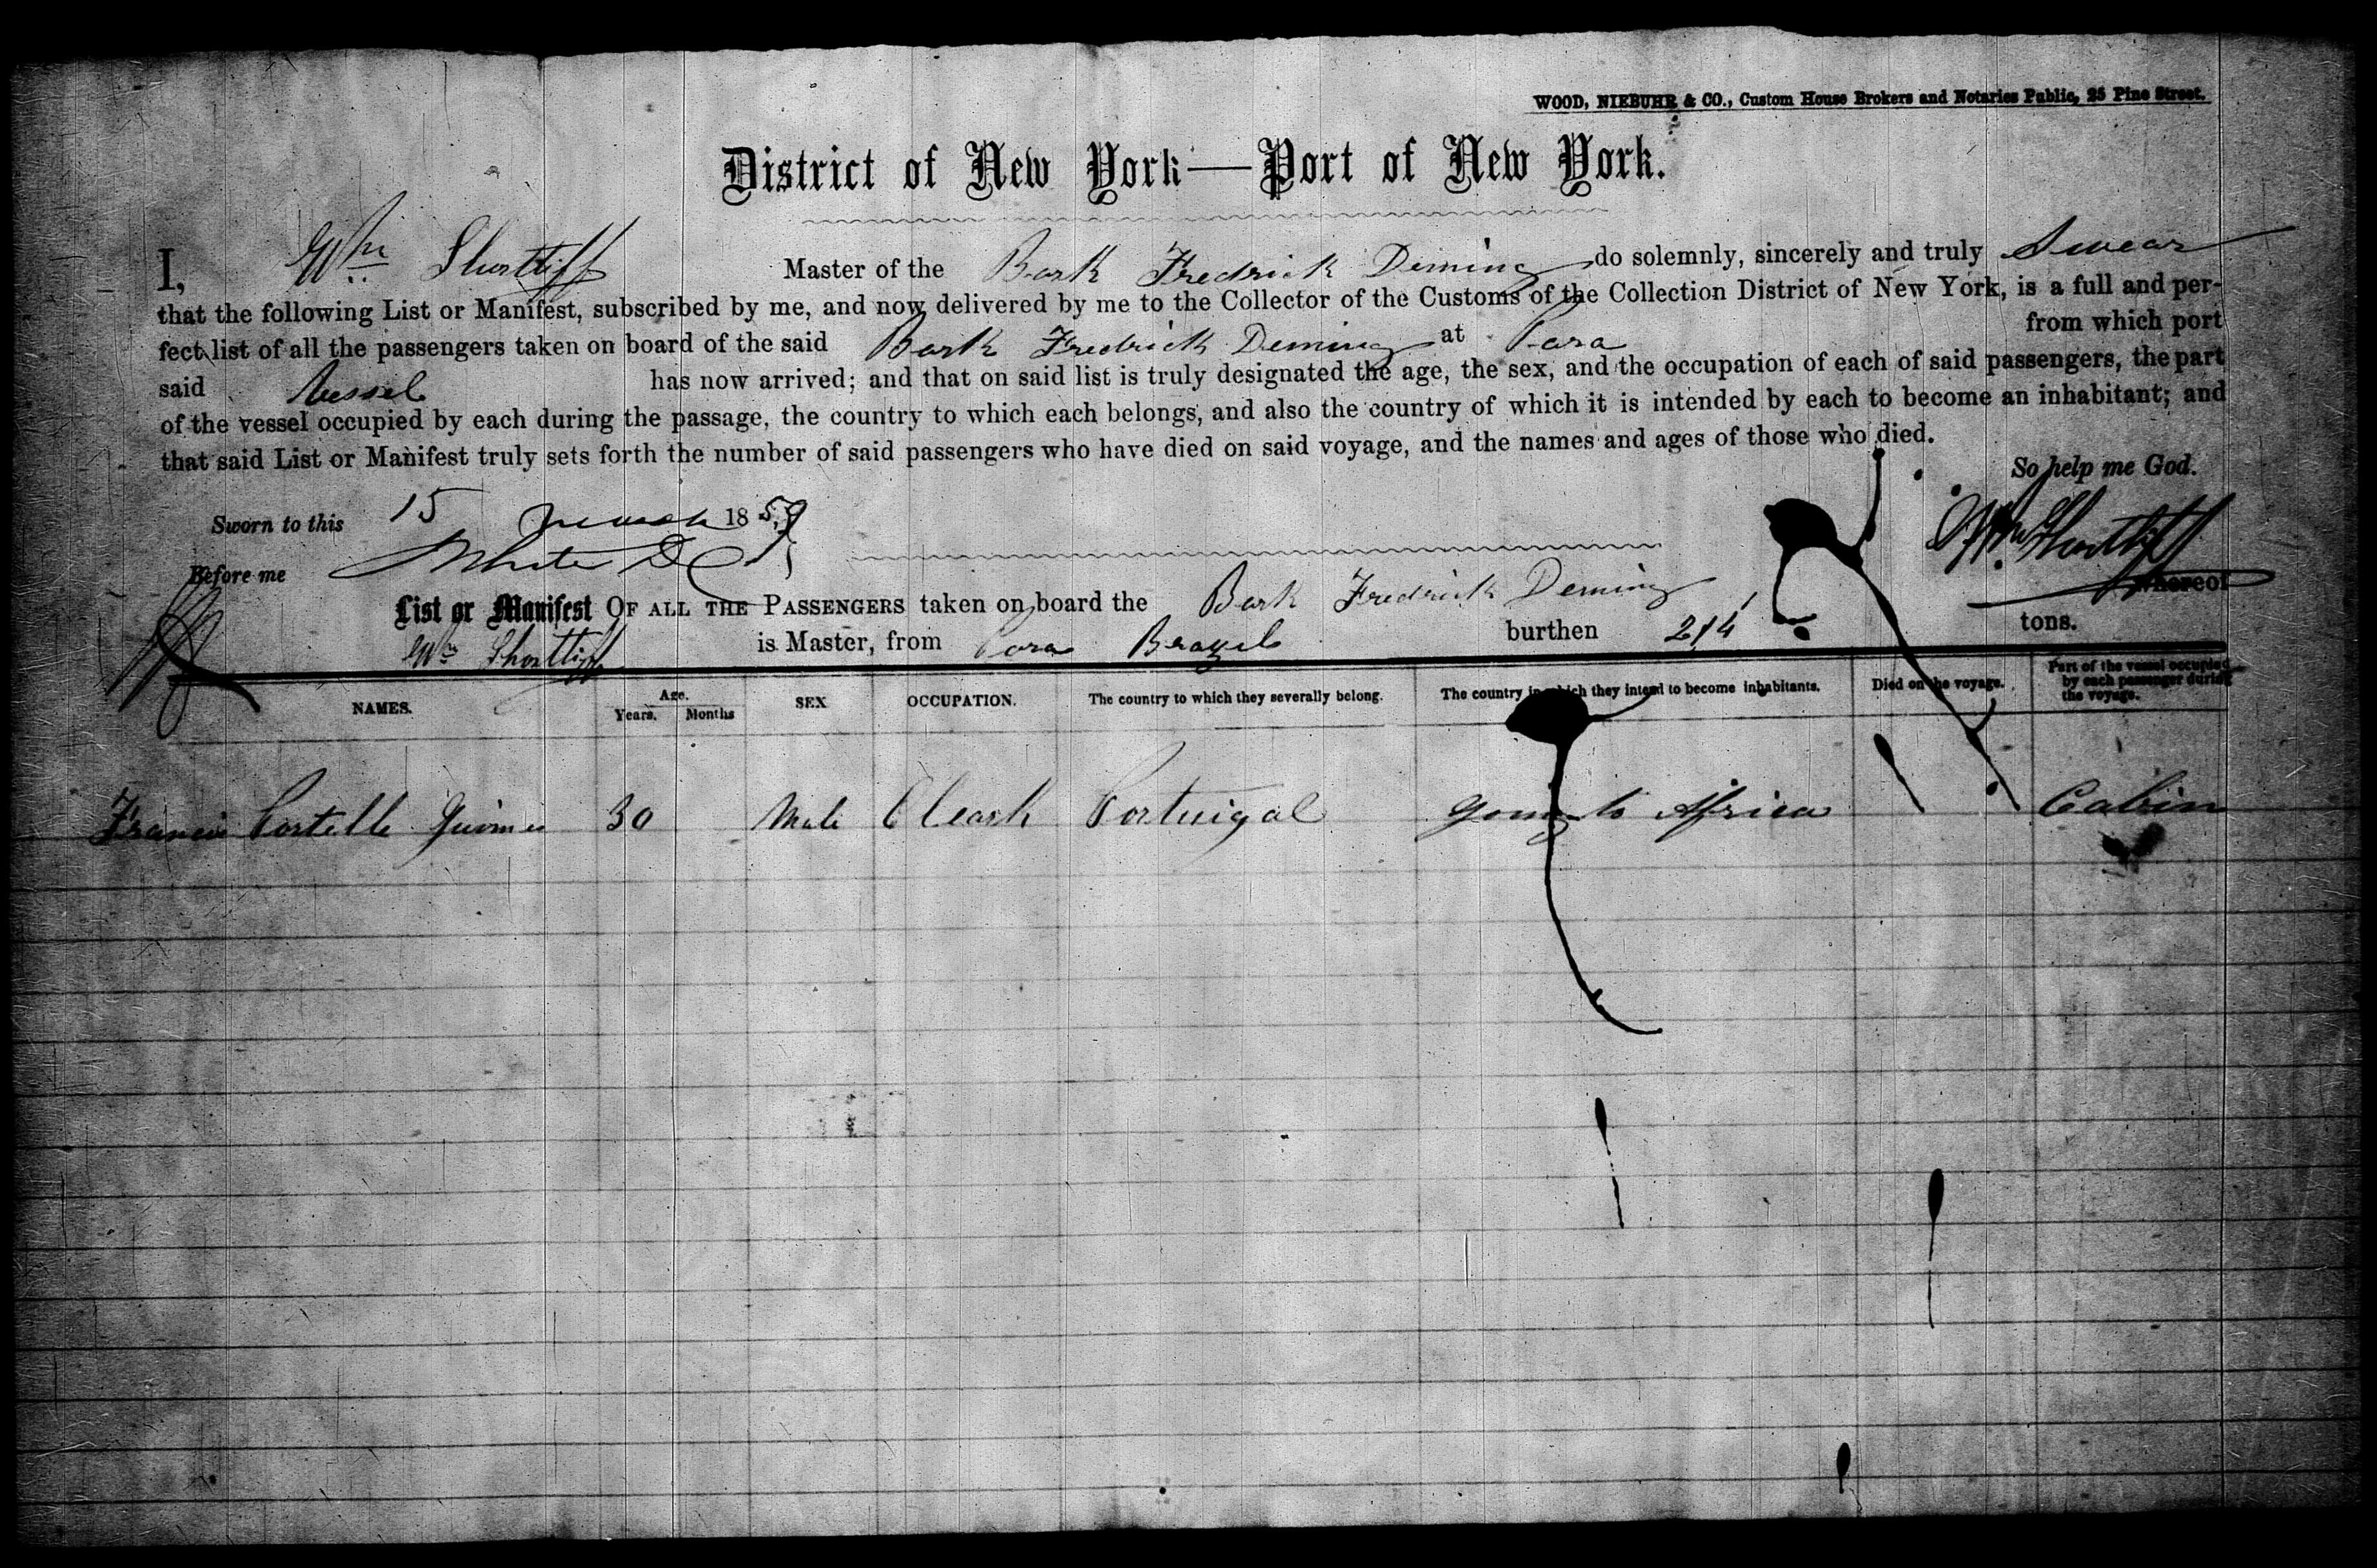 WOOD, NIEBUHR & CO., Custom House Brokers and Notaries Public, 25 Pine Street.
District of New York—Port of New York.
I, Wm Shurtliff Master of the Bark Fredrick Deming do solemnly, sincerely and truly Swear
that the following List or Manifest, subscribed by me, and now delivered by me to the Collector of the Customs of the Collection District of New York, is a full and per-
fect list of all the passengers taken on board of the said Bark Fredrick Deming at Para from which port
said Vessel has now arrived; and that on said list is truly designated the age, the sex, and the occupation of each of said passengers, the part
of the vessel occupied by each during the passage, the country to which each belongs, and also the country of which it is intended by each to become an inhabitant; and
that said List or Manifest truly sets forth the number of said passengers who have died on said voyage, and the names and ages of those who died.
So help me God.
Sworn to this 15 March 1859
Wm Shurtliff
Before me
List or Manifest OF ALL THE PASSENGERS taken on board the Bark Fredrick Deming whereof
Wm Shurtliff is Master, from Para Brazil burthen 214 tons.
NAMES. Age. Years. Months SEX OCCUPATION. The country to which they severally belong. The country in which they intend to become inhabitants. Died on the voyage. Part of the vessel occupied by each passenger during the voyage.
Francis 30 Male Cleark Portuigal going to Africa Cabin